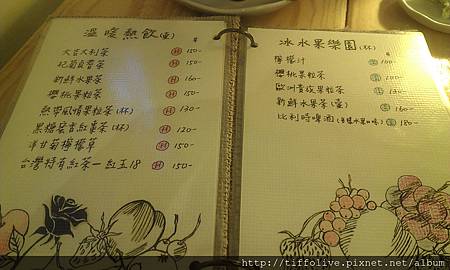 溫暖熱飲(壺)
大吉大利茶 H 150-
杞菊良香茶 H 150-
新鮮水果茶 H 160-
櫻桃果粒茶 H 150-
熱帶風情果粒茶(杯) H 130-
黑糖蜜香紅薑茶(杯) H 120-
洋甘菊檸檬草 H 150-
台灣特有紅茶-紅玉18 H 150-
冰水果樂園(杯)
檸檬汁 100-
櫻桃果粒茶 200-
歐洲貴族果粒茶 160-
新鮮水果茶(壺) 160-
比利時啤酒 180-
http://tiffolive.pixnet.net/album